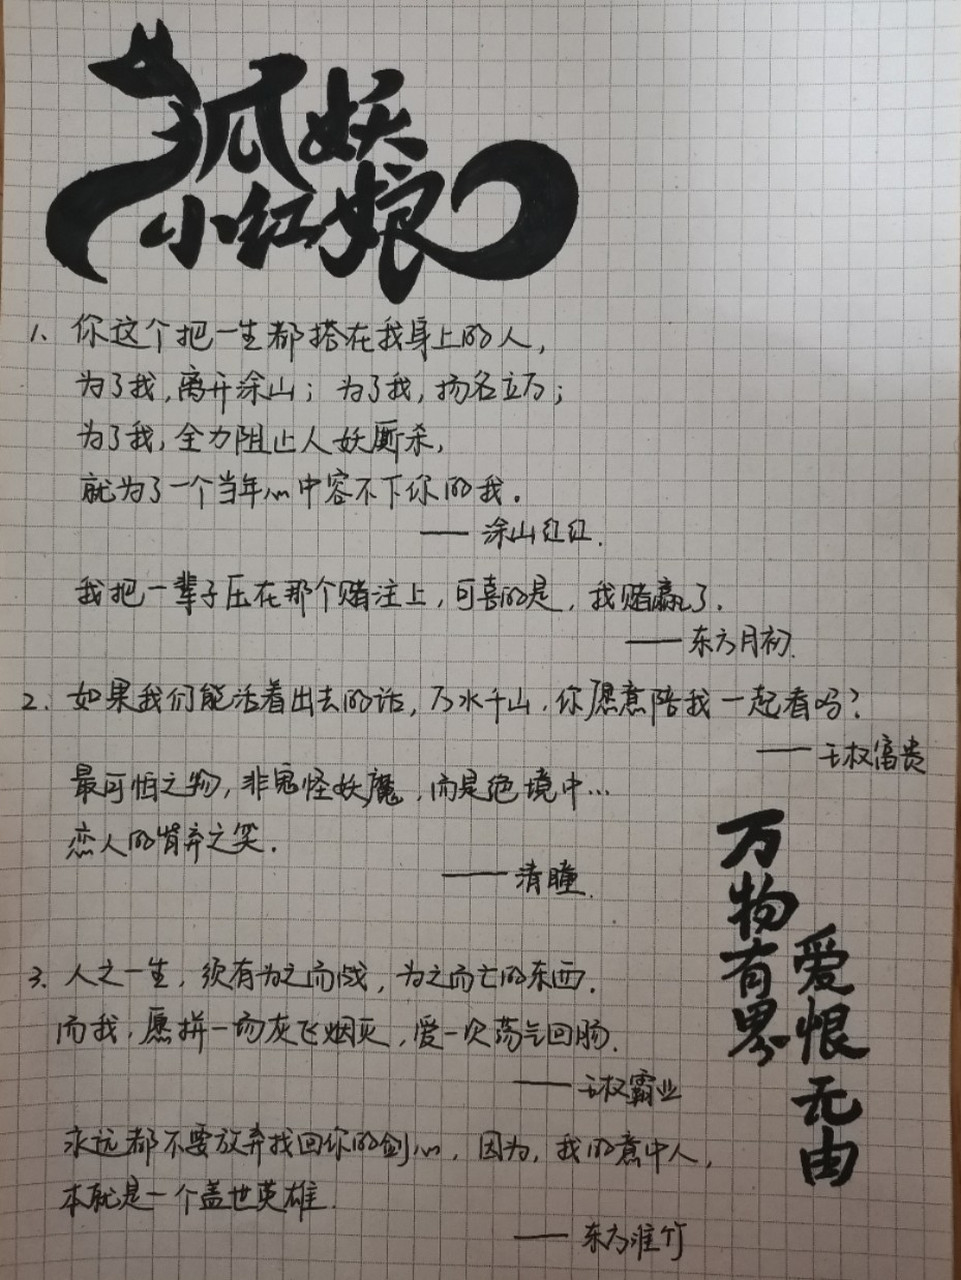 狐妖
小红娘
1、你这个把一生都搭在我身上的人，
为了我，离开涂山；为了我，扬名立万；
为了我，全力阻止人妖厮杀，
就为了一个当年心中容不下你的我。
—— 涂山红红.
我把一辈子压在那个赌注上，可喜的是，我赌赢了.
—— 东方月初.
2、如果我们能活着出去的话，万水千山，你愿意陪我一起看吗？
—— 王权富贵
最可怕之物，非鬼怪妖魔，而是绝境中…
恋人的背弃之笑.
—— 清瞳.
3、人之一生，须有为之而战，为之而亡的东西.
而我，愿拼一场灰飞烟灭，爱一次荡气回肠.
—— 王权霸业
永远都不要放弃找回你的剑心，因为，我的意中人，
本就是一个盖世英雄.
—— 东方淮竹
万物有界
爱恨无由